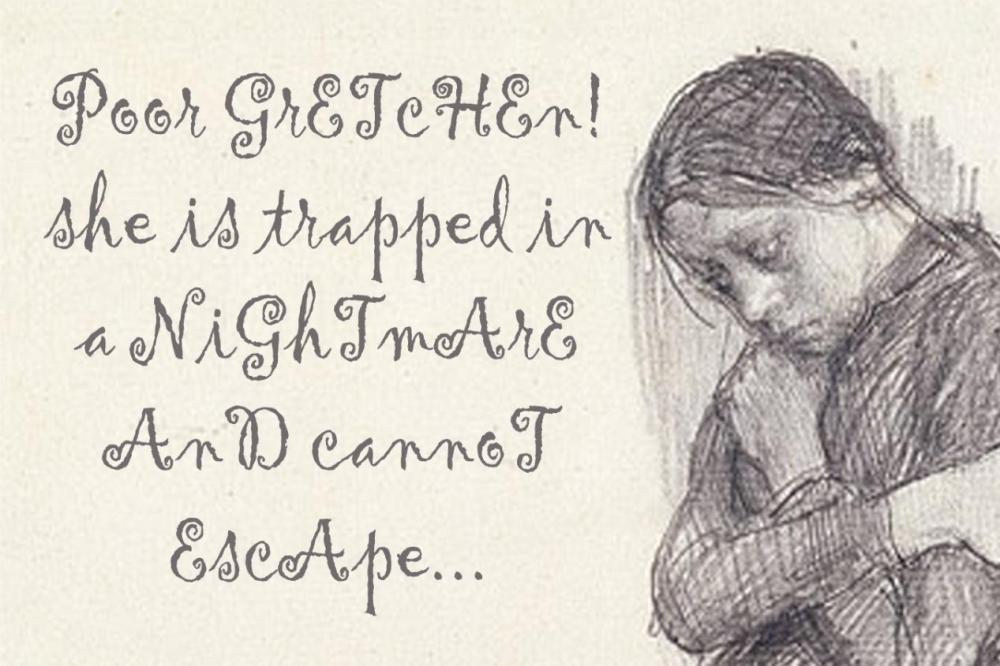 Poor GrETcHEn!
she is trapped in
a NiGhTmArE
AnD cannoT
EscApe...